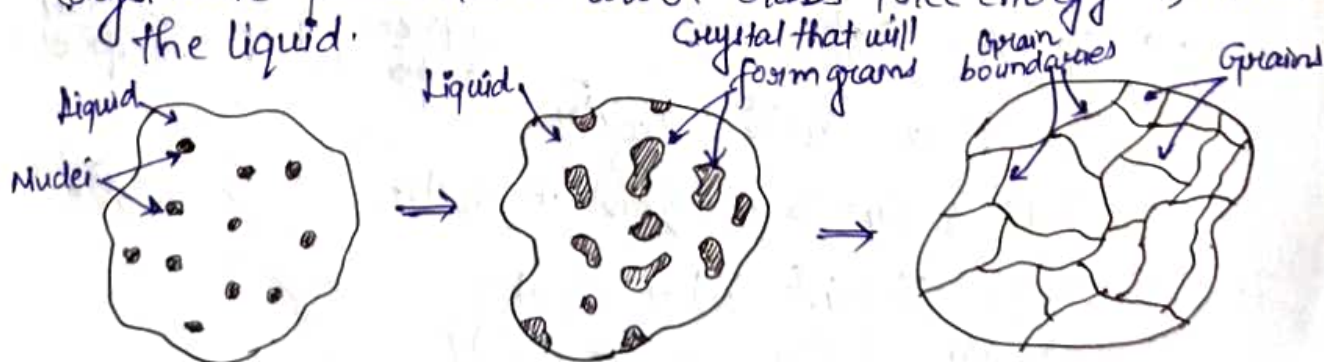 the liquid.
Liquid
Nuclei
Liquid
Crystal that will
form grains
Grain
boundaries
Grains